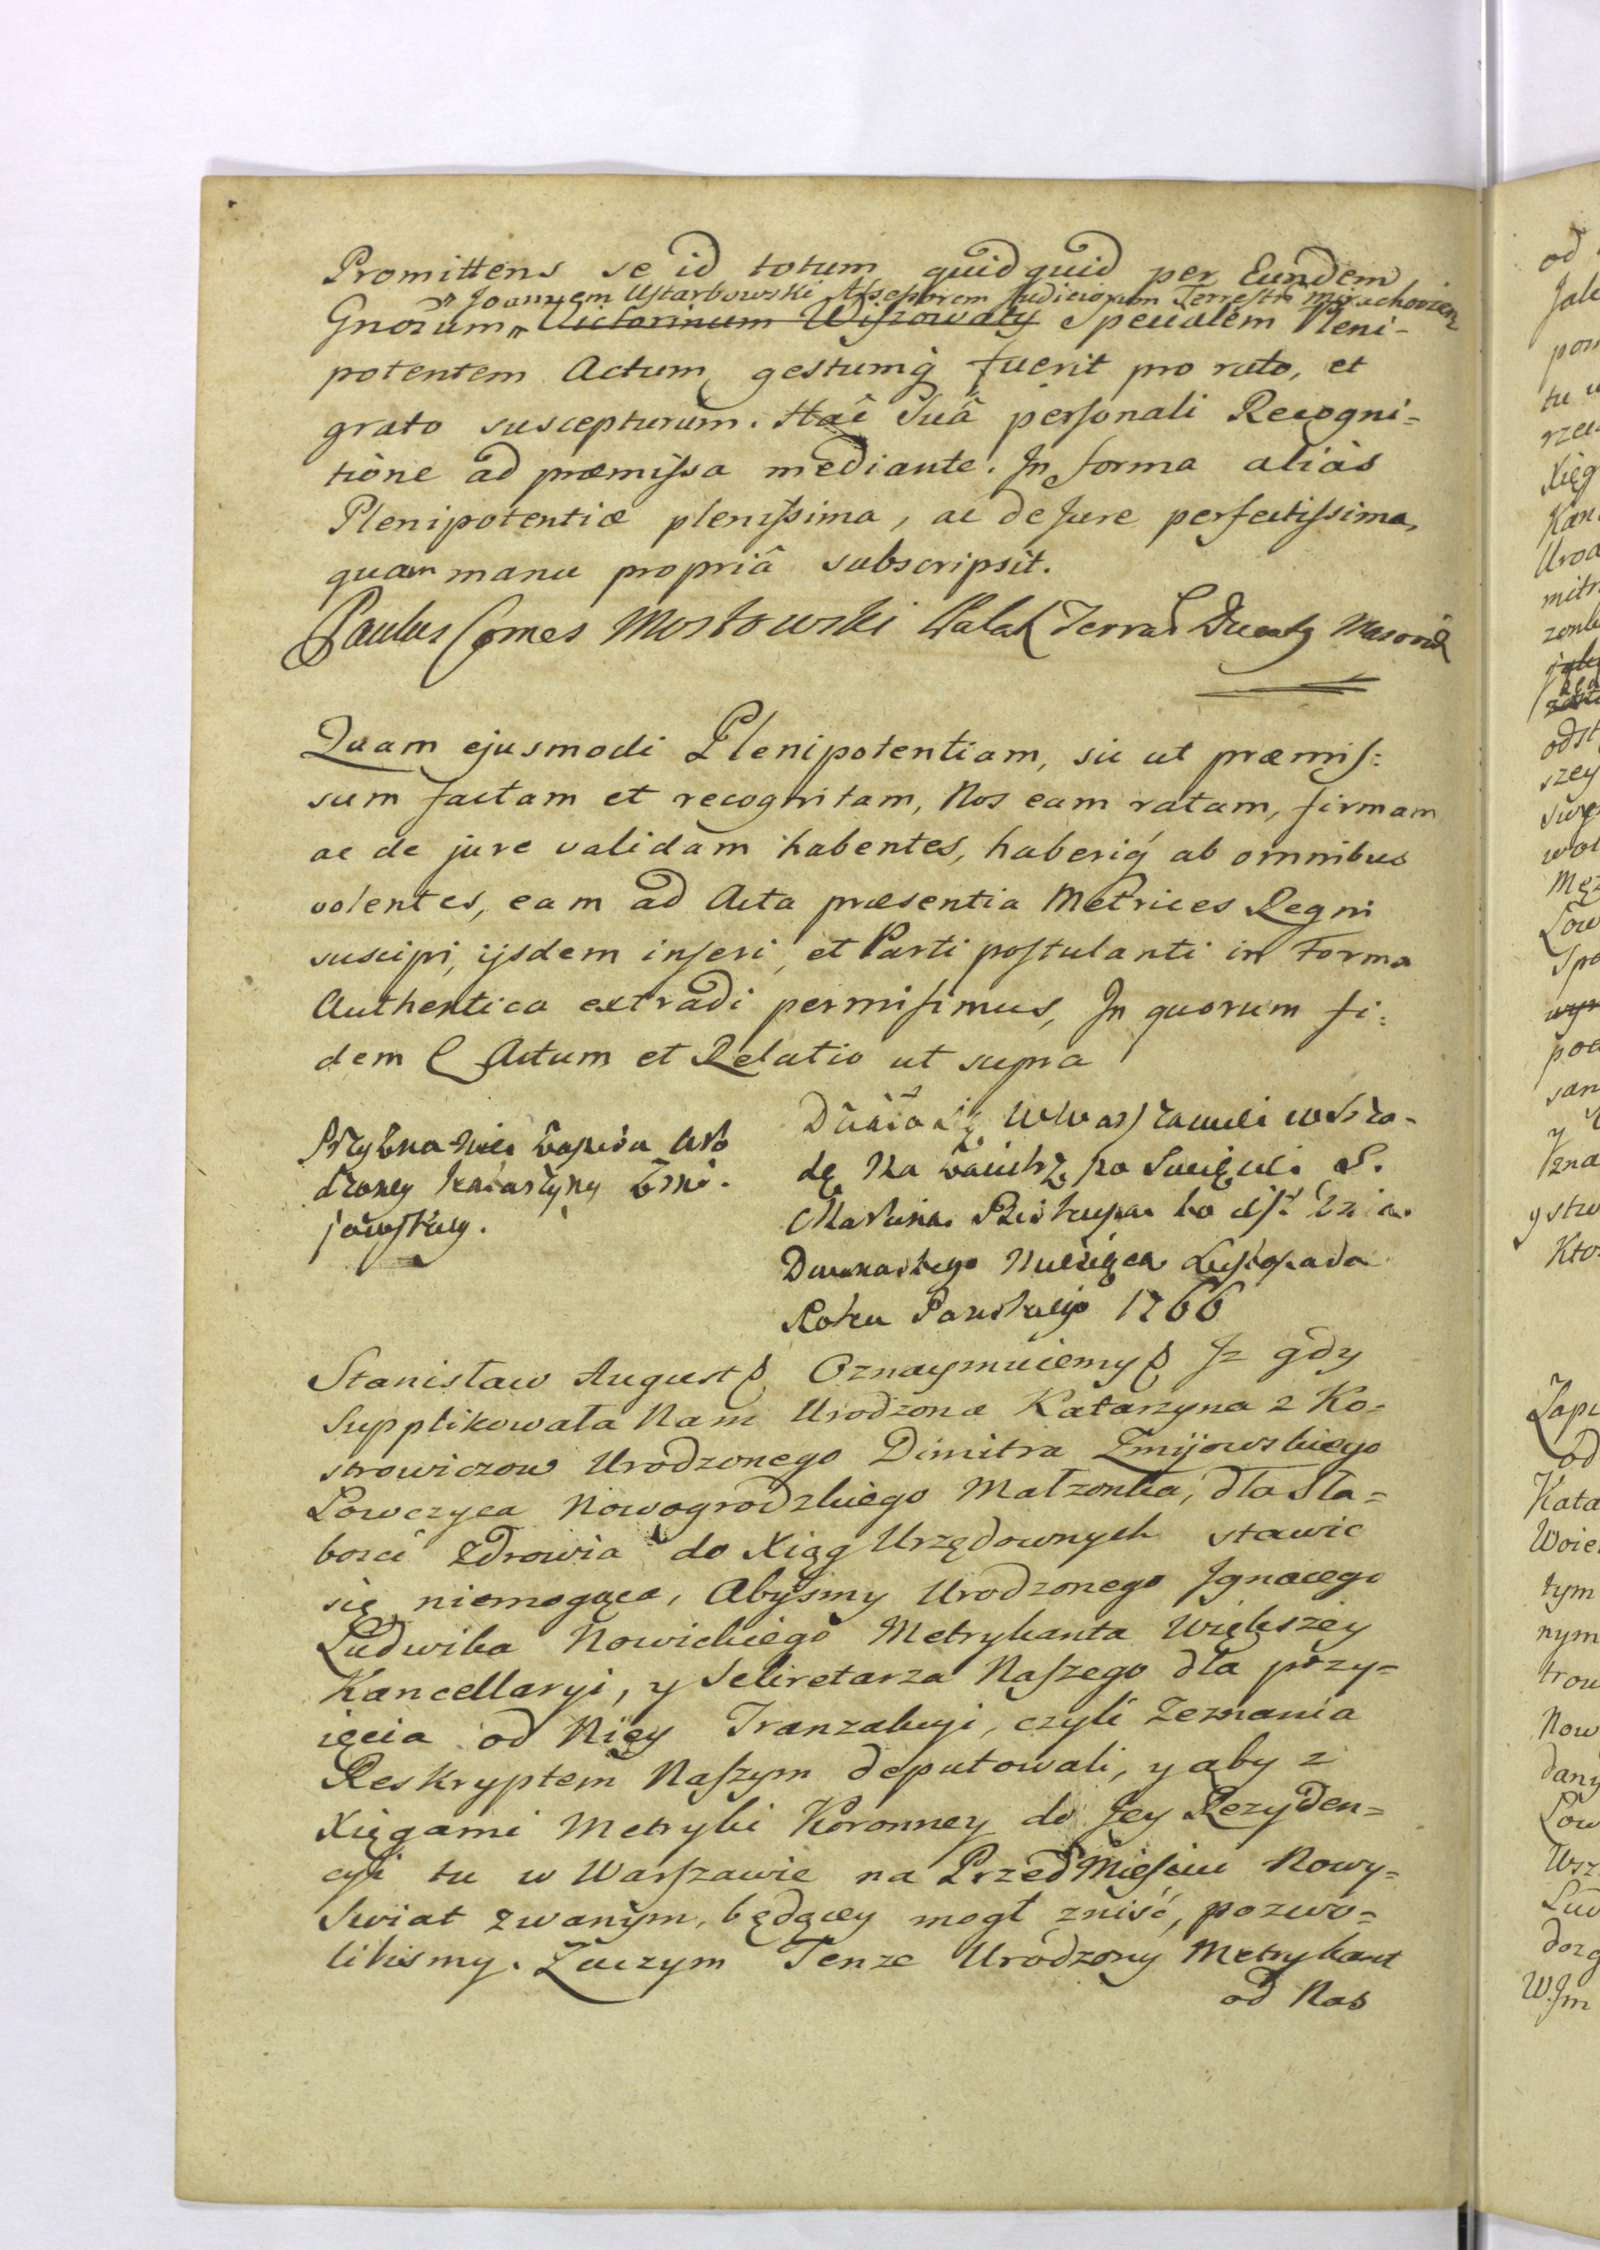 Promittens se id totum quidquid per Eundem
" Joannem Ustarbowski Assessorem Judiciorum Terrestr: Mirachovien
Gnosum " Victorinum Wiszowaty Specialem Pleni-
potentem Actum gestumq́ fuerit pro rato, et
grato suscepturum. Hac Suâ personali Recogni=
tione ad præmissa mediante. In forma aliàs
Plenipotentiæ plenissima, ac de Jure perfectissima,
quam manu propriâ subscripsit.
Paulus Comes Mostowski Palat Terrar Ducatq Masoviæ
Quam ejusmodi Plenipotentiam, sic ut præmis:
sum factam et recognitam, Nos eam ratam, firmam
ac de jure validam habentes, haberiq́ ab omnibus
volentes, eam ad Acta præsentia Metrices Regni
suscipi, ijsdem inseri, et Parti postulanti in Forma
Authentica extradi permisimus, In quorum fi:
dem Actum et Relatio ut supra
Przyznanie Zapisu Uro
dzoney Katarzyny Zmi-
jowskiey.
Działo się w Warszawie w Srzo-
dę Na zaiutrz po Swięcie S.
Marcina Biskupa to iest Dnia
Dwunastego Miesiąca Listopada
Roku Panskiego 1766
Stanisław August Oznaymuiemy Iz gdy
Supplikowała Nam Urodzona Katarzyna z Ko=
strowiczow Urodzonego Dimitra Zmijowskiego
Łowczyca Nowogrodzkiego Małzonka, dla Sła=
bosci Zdrowia do Xiąg Urzędownych stawic
się niemogąca, Abyśmy Urodzonego Ignacego
Ludwika Nowickiego Metrykanta Większey
Kancellaryi, y Sekretarza Naszego dla przy=
ięcia od Niey Tranzakcyi, czyli Zeznania
Reskryptem Naszym deputowali, y aby z
Xięgami Metryki Koronney do Jey Rezyden=
cyi tu w Warszawie na PrzedMiesciu Nowy=
Swiat zwanym, będącey mogł zniść, pozwo=
lilismy. Zaczym Tenze Urodzony Metrykant
od Nas